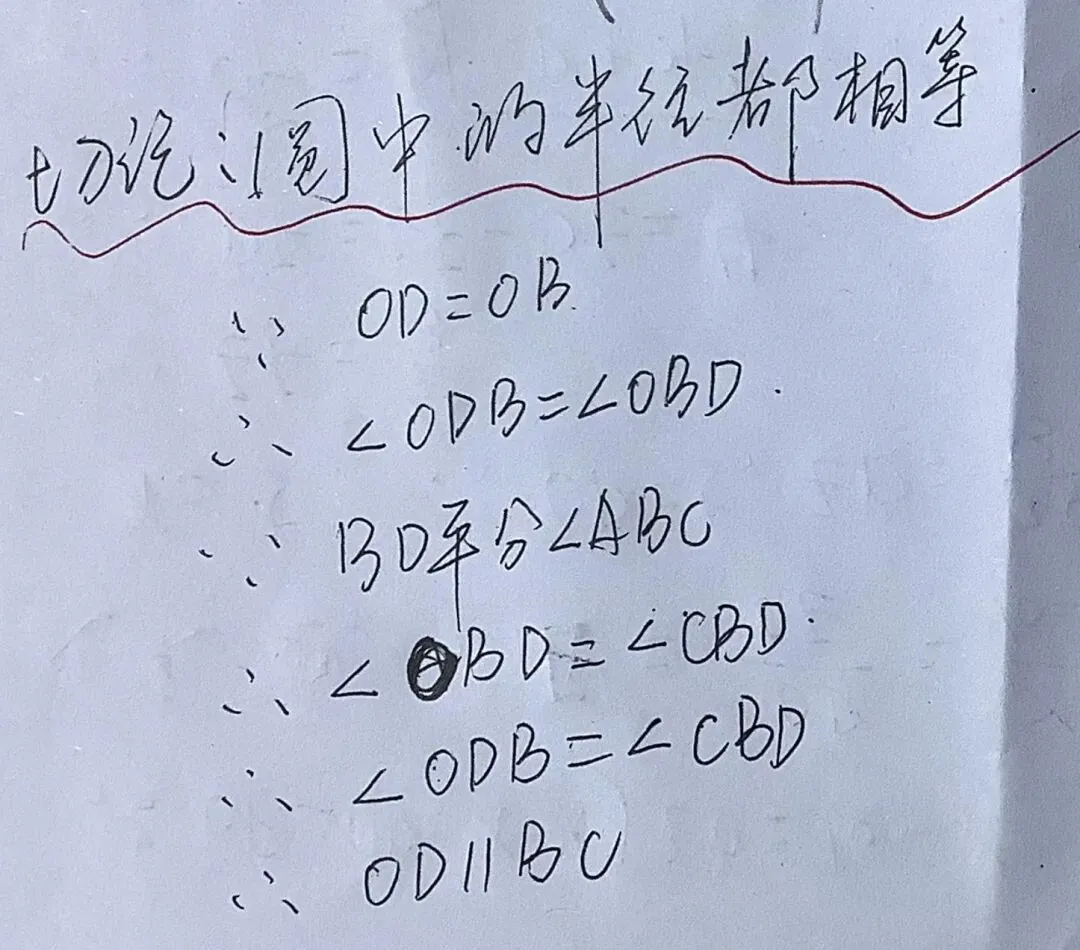 切记:圆中的半径都相等
∵ OD=OB
∴ ∠ODB=∠OBD.
∵ BD平分∠ABC
∴ ∠OBD=∠CBD.
∴ ∠ODB=∠CBD
∴ OD∥BC